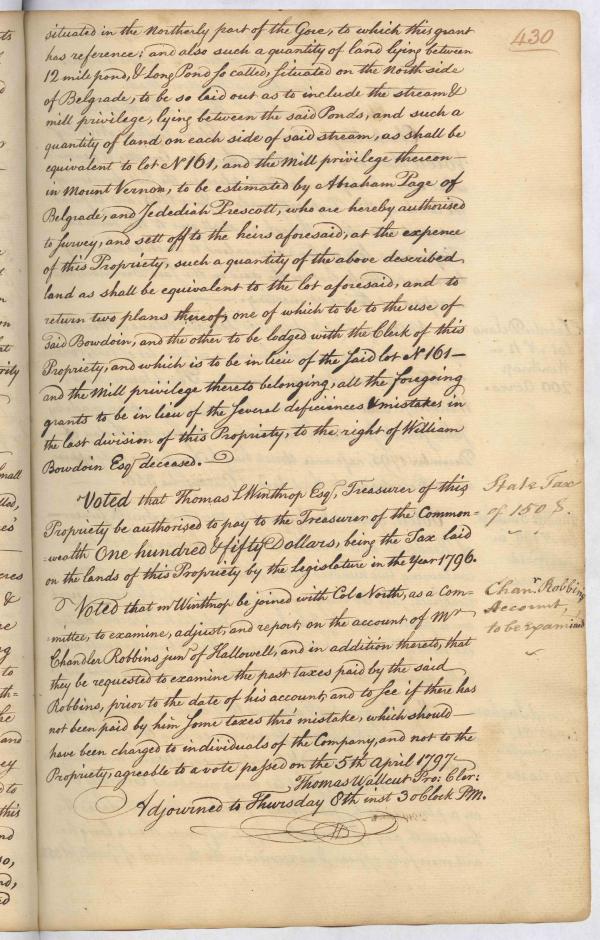 430
situated in the Northerly part of the Gore, to which this grant
has reference; and also such a quantity of land lying between
12 mile pond, & Long Pond so called, situated on the North side
of Belgrade, to be so laid out as to include the stream &
mill privilege, lying between the said Ponds, and such a
quantity of land on each side of said stream, as shall be
equivalent to lot No 161, and the Mill privilege thereon—
in Mount Vernon, to be estimated by Abraham Page of
Belgrade, and Jedediah Prescott, who are hereby authorised
to survey, and sett off to the heirs aforesaid, at the expence
of this Propriety, such a quantity of the above described
land as shall be equivalent to the lot aforesaid, and to
return two plans thereof, one of which to be to the use of
said Bowdoin, and the other to be lodged with the Clerk of this
Propriety, and which is to be in lieu of the said lot No 161—
and the Mill privilege thereto belonging, all the foregoing
grants to be in lieu of the several deficiences & mistakes in
the last division of this Propriety, to the right of William
Bowdoin Esqr deceased.—
State Tax
of 150 $.
Voted that Thomas L Winthrop Esqr, Treasurer of this
Propriety be authorised to pay to the Treasurer of the Common=
=wealth One hundred & fifty Dollars, being the Tax laid
on the lands of this Propriety by the Legislature in the Year 1796.
Chanr. Robbins
Account,
to be examined
Voted that mr Winthrop be joined with Col North, as a Com-
mittee, to examine, adjust, and report, on the account of Mr
Chandler Robbins junr of Hallowell, and in addition thereto, that
they be requested to examine the past taxes paid by the said
Robbins, prior to the date of his account, and to see if there has
not been paid by him some taxes thro' mistake, which should—
have been charged to individuals of the Company, and not to the
Propriety, agreable to a vote passed on the 5th April 1797—
Thomas Wallcut Pro: Cler:
Adjourned to Thursday 8th inst 3 oClock PM.